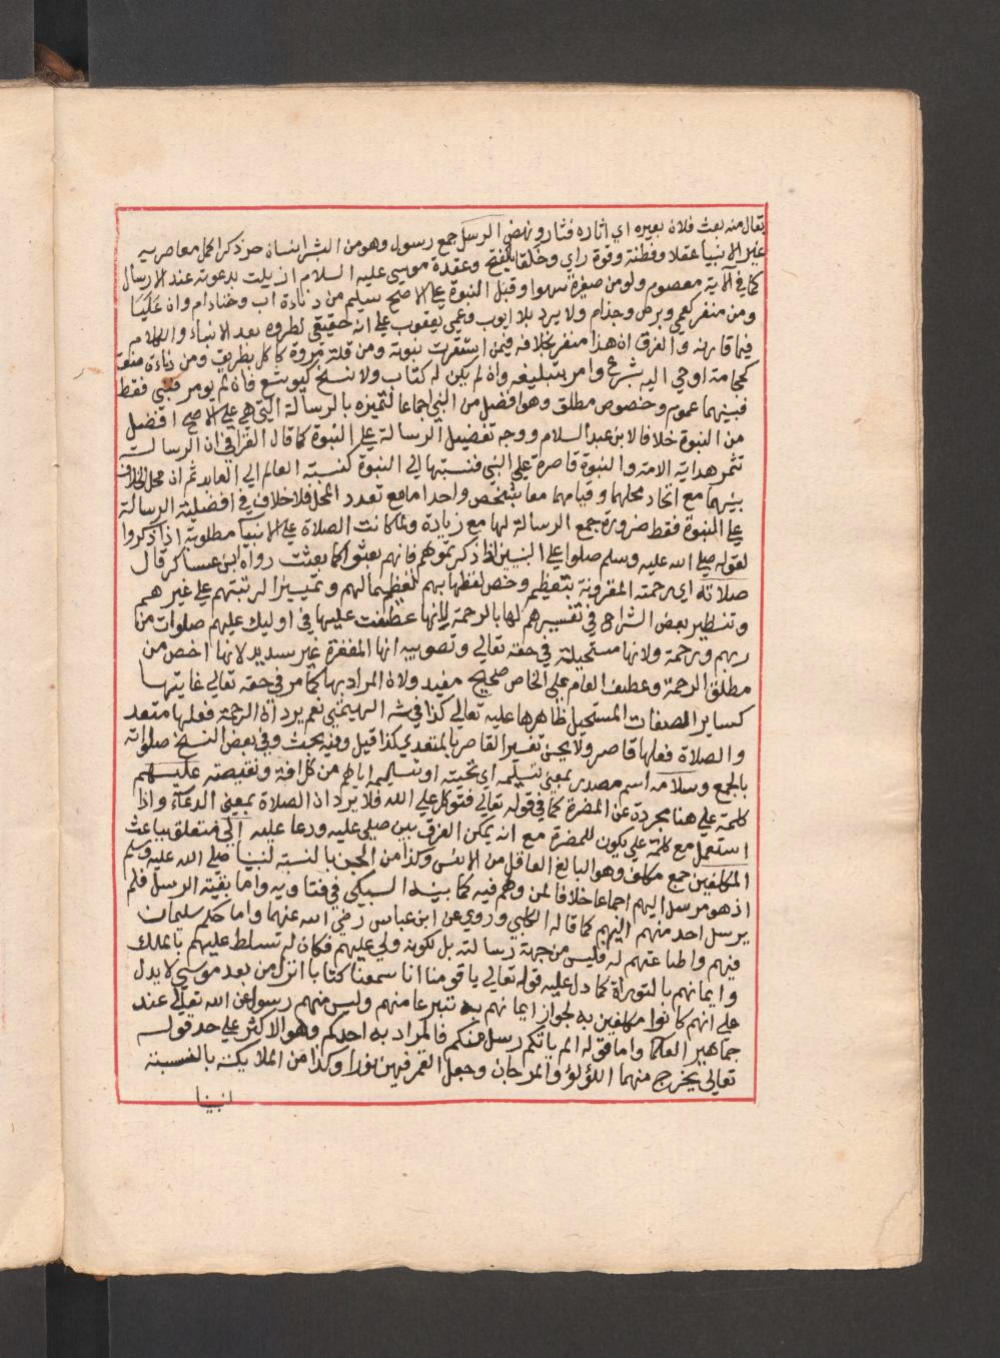 يقال منه بعث فلان بعيره اي اثاره فثار ونهض الرسل جمع رسول وهو من البشر انسان حر ذكر اكمل معاصريه
غير الانبيا عقلا وفطنة وقوة راي وخلقا بالفتح وعقدة موسى عليه السلام ازيلت بدعوته عند الارسال
كما في الآية معصوم ولو من صغيرة سهوا وقبل النبوة على الاصح سليم من دناءة اب وخنا ام وان عليا
ومن منفر كعمى وبرص وجذام ولا يرد بلا ايوب وعمى يعقوب على انه حقيقي لطروه بعد الانباء والكلام
فيما قارنه والفرق ان هذا منفر بخلافه فيمن استقرت نبوته ومن قلة مروة كاكل بطريق ومن دناءة صنعة
كحجامة اوحي اليه بشرع وامر بتبليغه وان لم يكن له كتاب ولا نسخ كيوشع فان لم يومر فنبي فقط
فبينهما عموم وخصوص مطلق وهو افضل من النبي اجماعا لتميزه بالرسالة التي هي على الاصح افضل
من النبوة خلافا لابن عبد السلام ووجه تفضيل الرسالة على النبوة كما قال القرافي ان الرسالة
تثمر هداية الامة والنبوة قاصرة على النبي فنسبتها الى النبوة كنسبة العالم الي العابد ثم ان محل الخلاف
بينهما مع اتحاد محلهما وقيامهما معا بشخص واحد اما مع تعدد المحل فلا خلاف في افضلية الرسالة
على النبوة فقط ضرورة جمع الرسالة لها مع زيادة ولما كانت الصلاة على الانبيآ مطلوبة اذا ذكروا
لقوله صلى الله عليه وسلم صلوا على النبيين اذا ذكرتموهم فانهم بعثوا كما بعثت رواه ابن عساكر قال
صلاته اي رحمته المقرونة بتعظيم وخص لفظها بهم تعظيما لهم وتمييزا لرتبتهم على غيرهم
وتنظير بعض الشراح في تفسيرهم لها بالرحمة بانها عطفت عليها في اوليك عليهم صلوات من
ربهم ورحمة ولانها مستحيلة في حقه تعالى وتصويبه انها المغفرة غير سديد لانها اخص من
مطلق الرحمة وعطف العام على الخاص صحيح مفيد ولان المراد بها كما مر في حقه تعالى غايتها
كساير الصفات المستحيل ظاهرها عليه تعالى كذا في شه الهيتمي نعم يرد ان الرحمة فعلها متعد
والصلاة فعلها قاصر ولا يحسن تفسير القاصر بالمتعدي كذا قيل وفيه بحث وفي بعض النسخ صلواته
بالجمع وسلامه اسم مصدر بمعنى تسليمه اي تحيته او تسليمه اياهم من كل آفة ونقيصة عليهم
كلمة على هنا مجردة عن المضرة كما في قوله تعالى فتوكل على الله فلا يرد ان الصلاة بمعنى الدعآء واذا
استعمل مع كلمة على يكون للمضرة مع انه يمكن الفرق بين صلى عليه ودعا عليه الى متعلق بباعث
المكلفين جمع مكلف وهو البالغ العاقل من الانس وكذا من الجن بالنسبة لنبينا صلى الله عليه وسلم
اذ هو مرسل اليهم اجماعا خلافا لمن وهم فيه كما بينه السبكي في فتاويه واما بقية الرسل فلم
يرسل احد منهم اليهم كما قاله الكلبي وروي عن ابن عباس رضي الله عنهما واما حكم سليمان
فيهم واطاعتهم له فليس من جهة رسالته بل لكونه ولي عليهم فكان له تسلط عليهم بالملك
وايمانهم بالتوراة كما دل عليه قوله تعالى يا قومنا انا سمعنا كتابا انزل من بعد موسى لا يدل
على انهم كانوا مكلفين به لجواز ايمانهم به تبرعا منهم وليس منهم رسول عن الله تعالى عند
جماهير العلما واما قوله الم ياتكم رسل منكم فالمراد به احدكم وهو الاكثر على حد قوله
تعالى يخرج منهما اللؤلؤ والمرجان وجعل القمر فيهن نورا وكذا من الملايكة بالنسبة
لنبينا